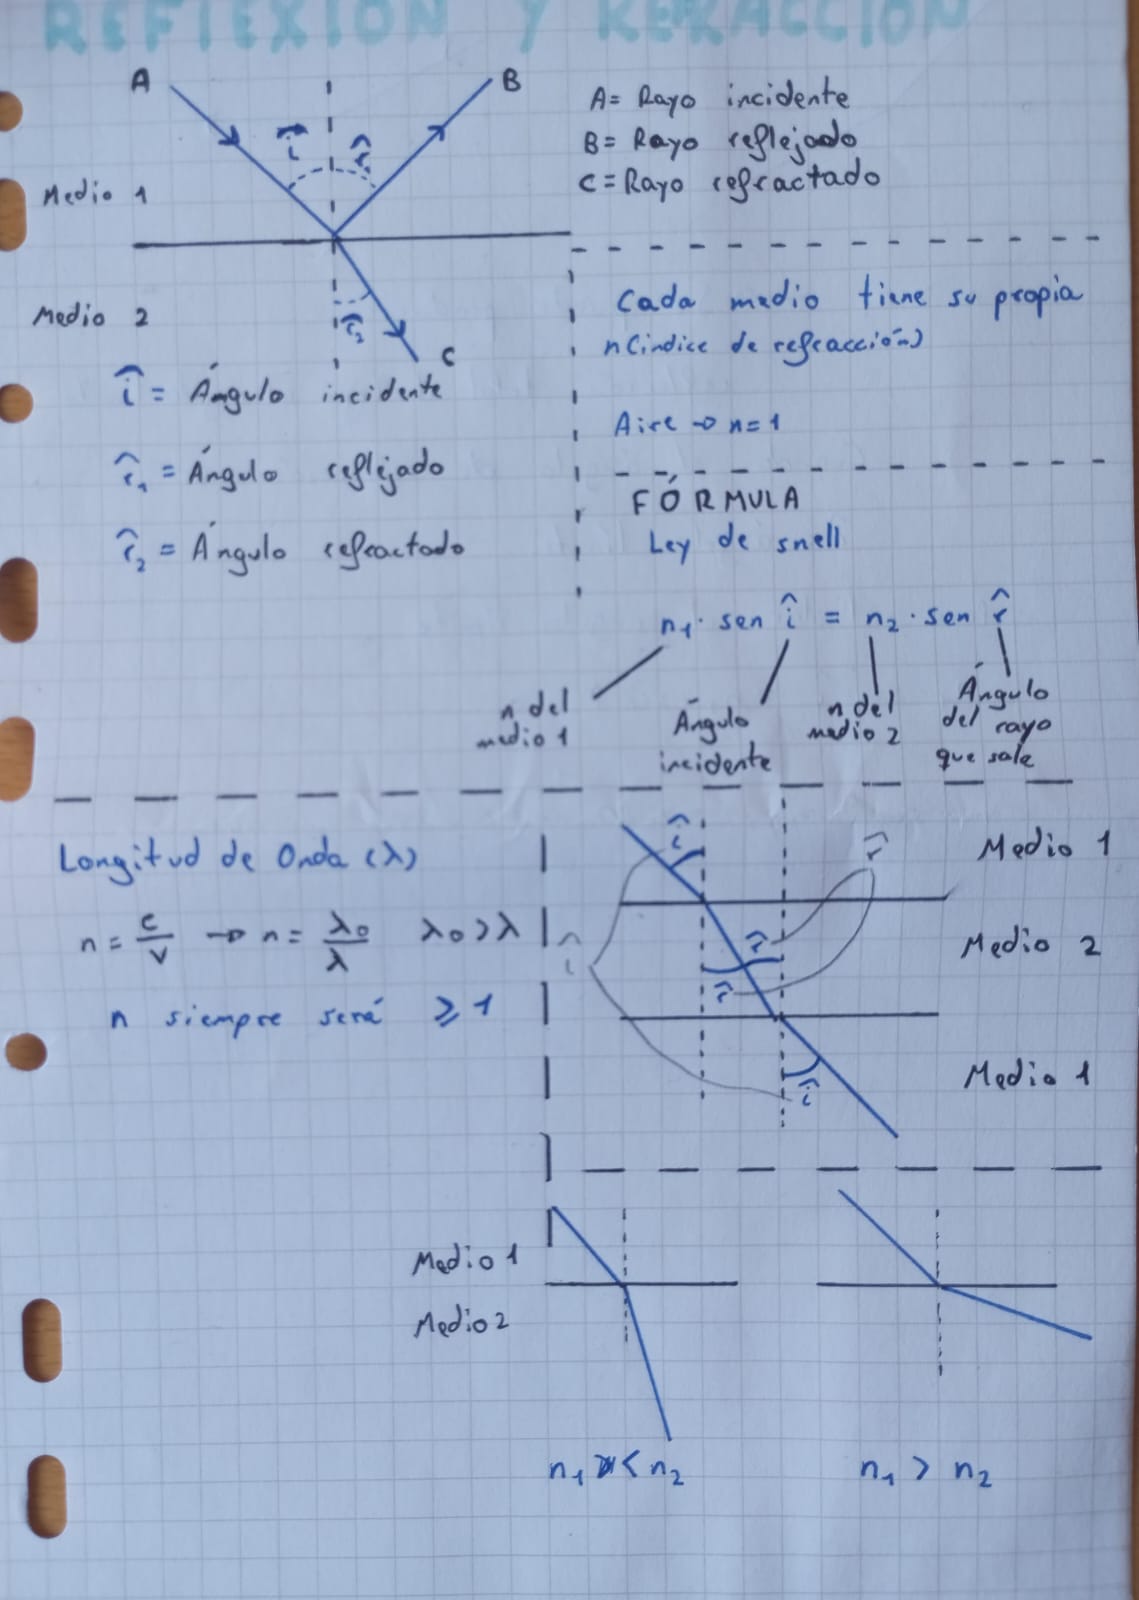 REFLEXIÓN Y REFRACCIÓN
A
B
î
r̂₁
A= Rayo incidente
B= Rayo reflejado
C= Rayo refractado
Medio 1
Medio 2
r̂₂
C
î = Ángulo incidente
r̂₁ = Ángulo reflejado
r̂₂ = Ángulo refractado
Cada medio tiene su propia
n (indice de refracción)
Aire → n=1
FÓRMULA
Ley de snell
n₁ · sen î = n₂ · sen r̂
n del
medio 1
Ángulo
incidente
n del
medio 2
Ángulo
del rayo
que sale
Longitud de Onda (λ)
n = c/v → n = λ₀/λ λ₀>λ
n siempre será ≥ 1
î
r̂
Medio 1
î
r̂
Medio 2
r̂
Medio 1
î
Medio 1
Medio 2
n₁ < n₂
n₁ > n₂